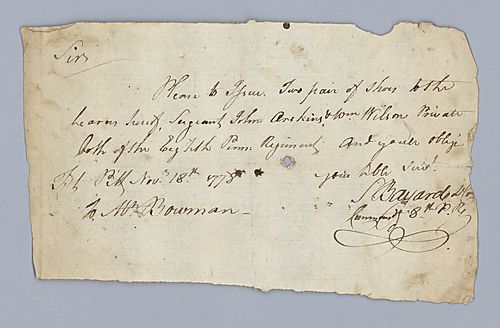 Sir
Please to Issue Two pair of Shoes to the
bearers hereof, Sergeant John Erskins & Wm Wilson Private
both of the Eighth Penn Regiment, and youll oblige
Ft. Pitt Novr. 18th 1778 your Hble Servt.
S Bayard
To Mr. Bowman - Commandt 8th P. Rg